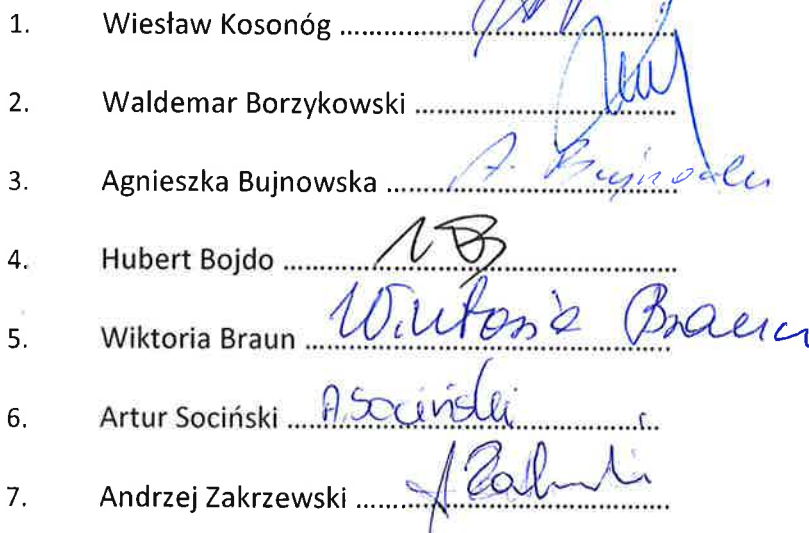 1. Wiesław Kosonóg ........................................
2. Waldemar Borzykowski ........................................
3. Agnieszka Bujnowska ........................................ A. Bujnowska
4. Hubert Bojdo ........................................
5. Wiktoria Braun ........................................ Wiktoria Braun
6. Artur Sociński ........................................ A. Sociński
7. Andrzej Zakrzewski ........................................